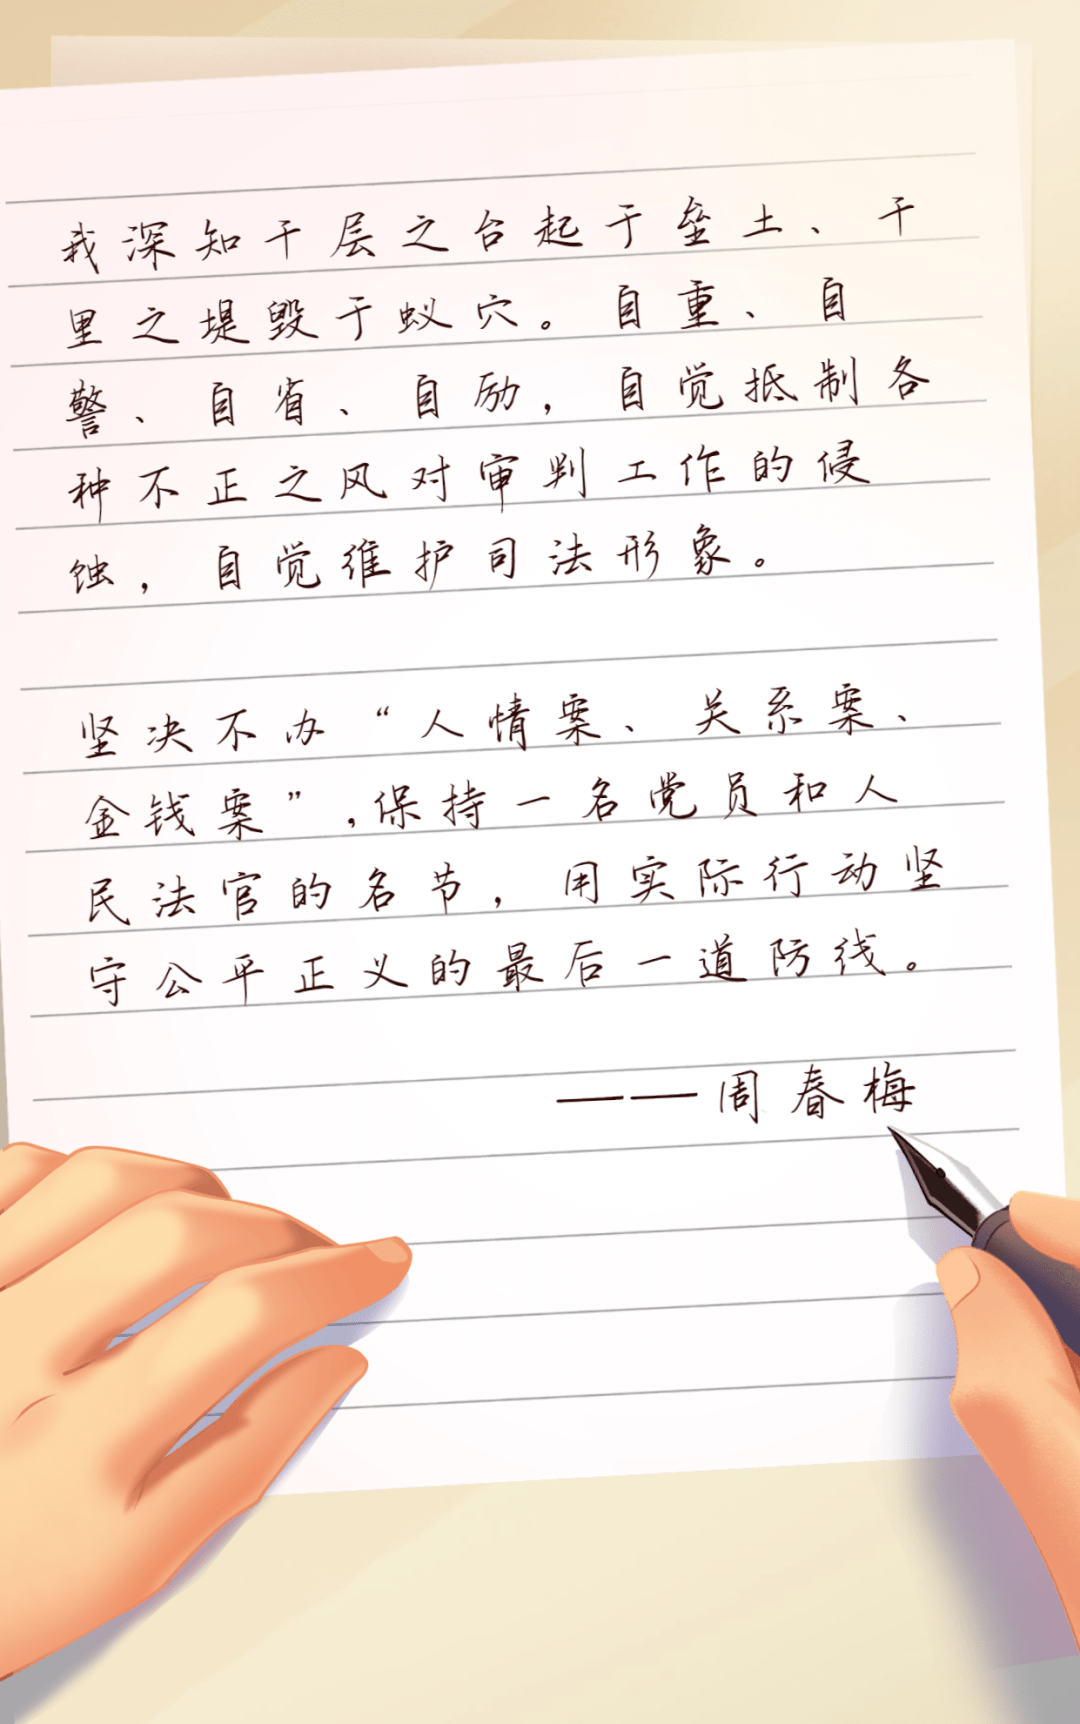 我深知千层之台起于垒土、千
里之堤毁于蚁穴。自重、自
警、自省、自励，自觉抵制各
种不正之风对审判工作的侵
蚀，自觉维护司法形象。
坚决不办“人情案、关系案、
金钱案”,保持一名党员和人
民法官的名节，用实际行动坚
守公平正义的最后一道防线。
——周春梅